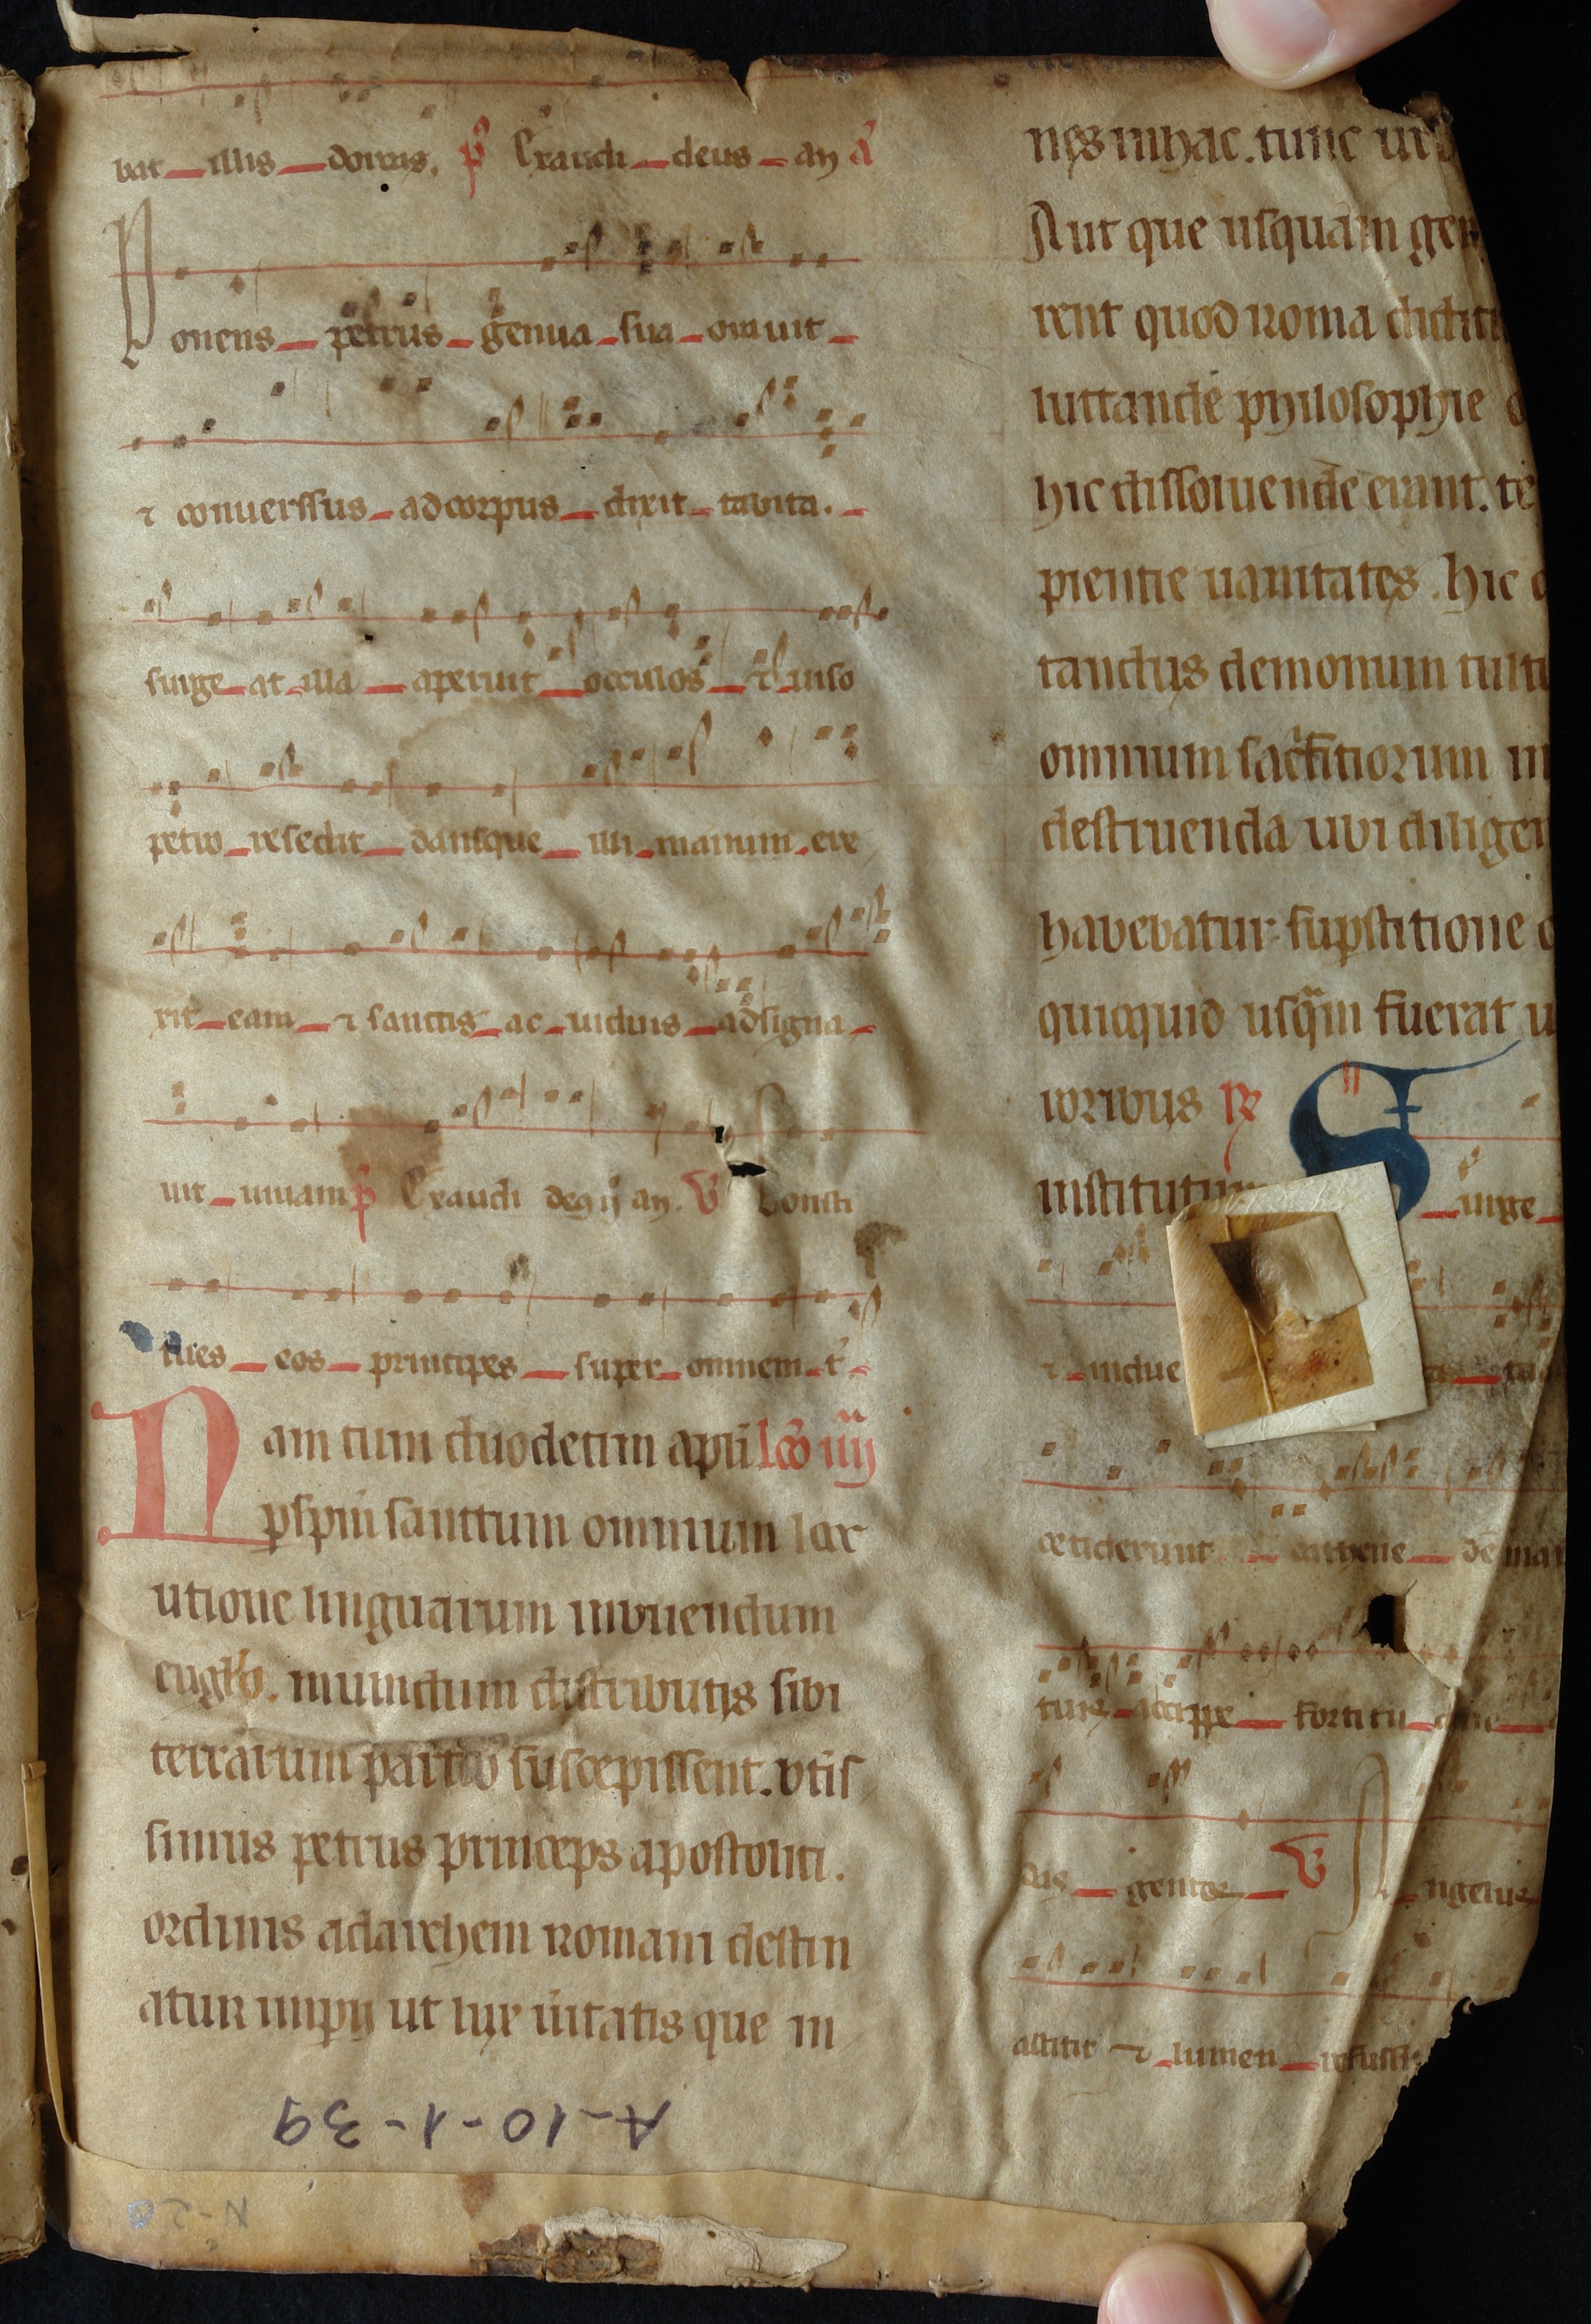 bat illis dorcas. p̃ Exaudi deus. añ ã
Ponens petrus genua sua orauit
⁊ conuerssus ad corpus dixit tabita.
surge at illa aperuit occulos ⁊ uiso
petro resedit dansque illi manum ere
xit eam ⁊ sanctis ac uiduis adsigna
uit uiuam p̃ Exaudi añ. V Consti
tues eos principes super omnem t̃
Nam cum duodecim apłi lcō iiij
spm sanctum omnium locc
utione linguarum inbuendum
euglo. mundum distributis sibi
terrarum partib suscepissent. btis
simus petrus princeps apostolici.
ordinis ad archem romani destin
atur impij ut lux uitatis que in
nes in hac. tunc urb
Aut que usquam gen
rent quod roma didici
luctande philosophie
hic dissoluende erant. te
pientie uanitates. hic
tandus demonum cult
omnium sacrificiorum in
destruenda ubi diligen
habebatur supstitione
quicquid usqam fuerat
roribus R̃ S
institutum urge
⁊ indue
ceciderunt cathene de ma
tuis accippe fortitu
das gentes V Angelus
astitit ⁊ lumen refulsit
A-10-1-39
N-20